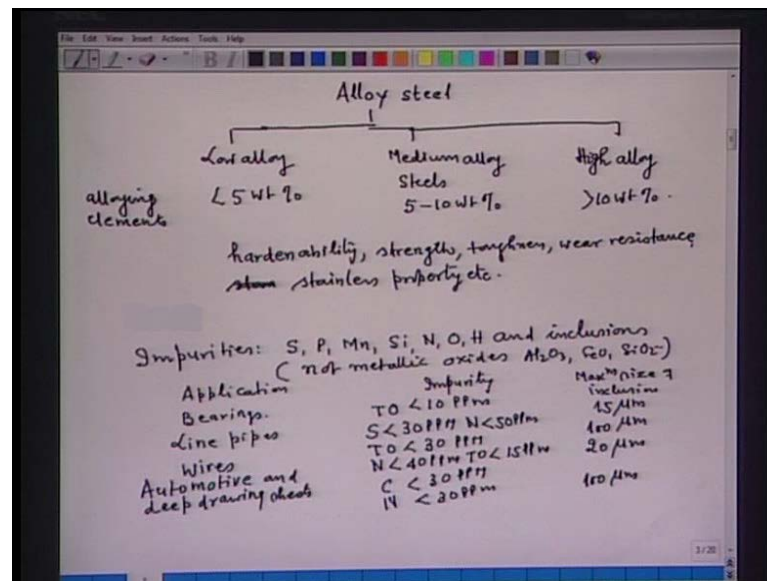 File Edit View Insert Actions Tools Help
Alloy steel
Low alloy Medium alloy High alloy
Steels
alloying < 5 wt % 5-10 wt % >10 wt %.
elements
hardenability, strength, toughness, wear resistance
stainless property etc.
Impurities: S, P, Mn, Si, N, O, H and inclusions
( not metallic oxides Al2O3, FeO, SiO2-)
Application Impurity Maxm size of
inclusion
Bearings. TO < 10 PPm 15 μm
Line pipes S < 30 PPM N < 50 PPm 100 μm
TO < 30 PPM
Wires N < 40 PPm TO < 15 PPm 20 μm
Automotive and C < 30 PPM 100 μm
deep drawing sheets N < 30 PPm
3/20